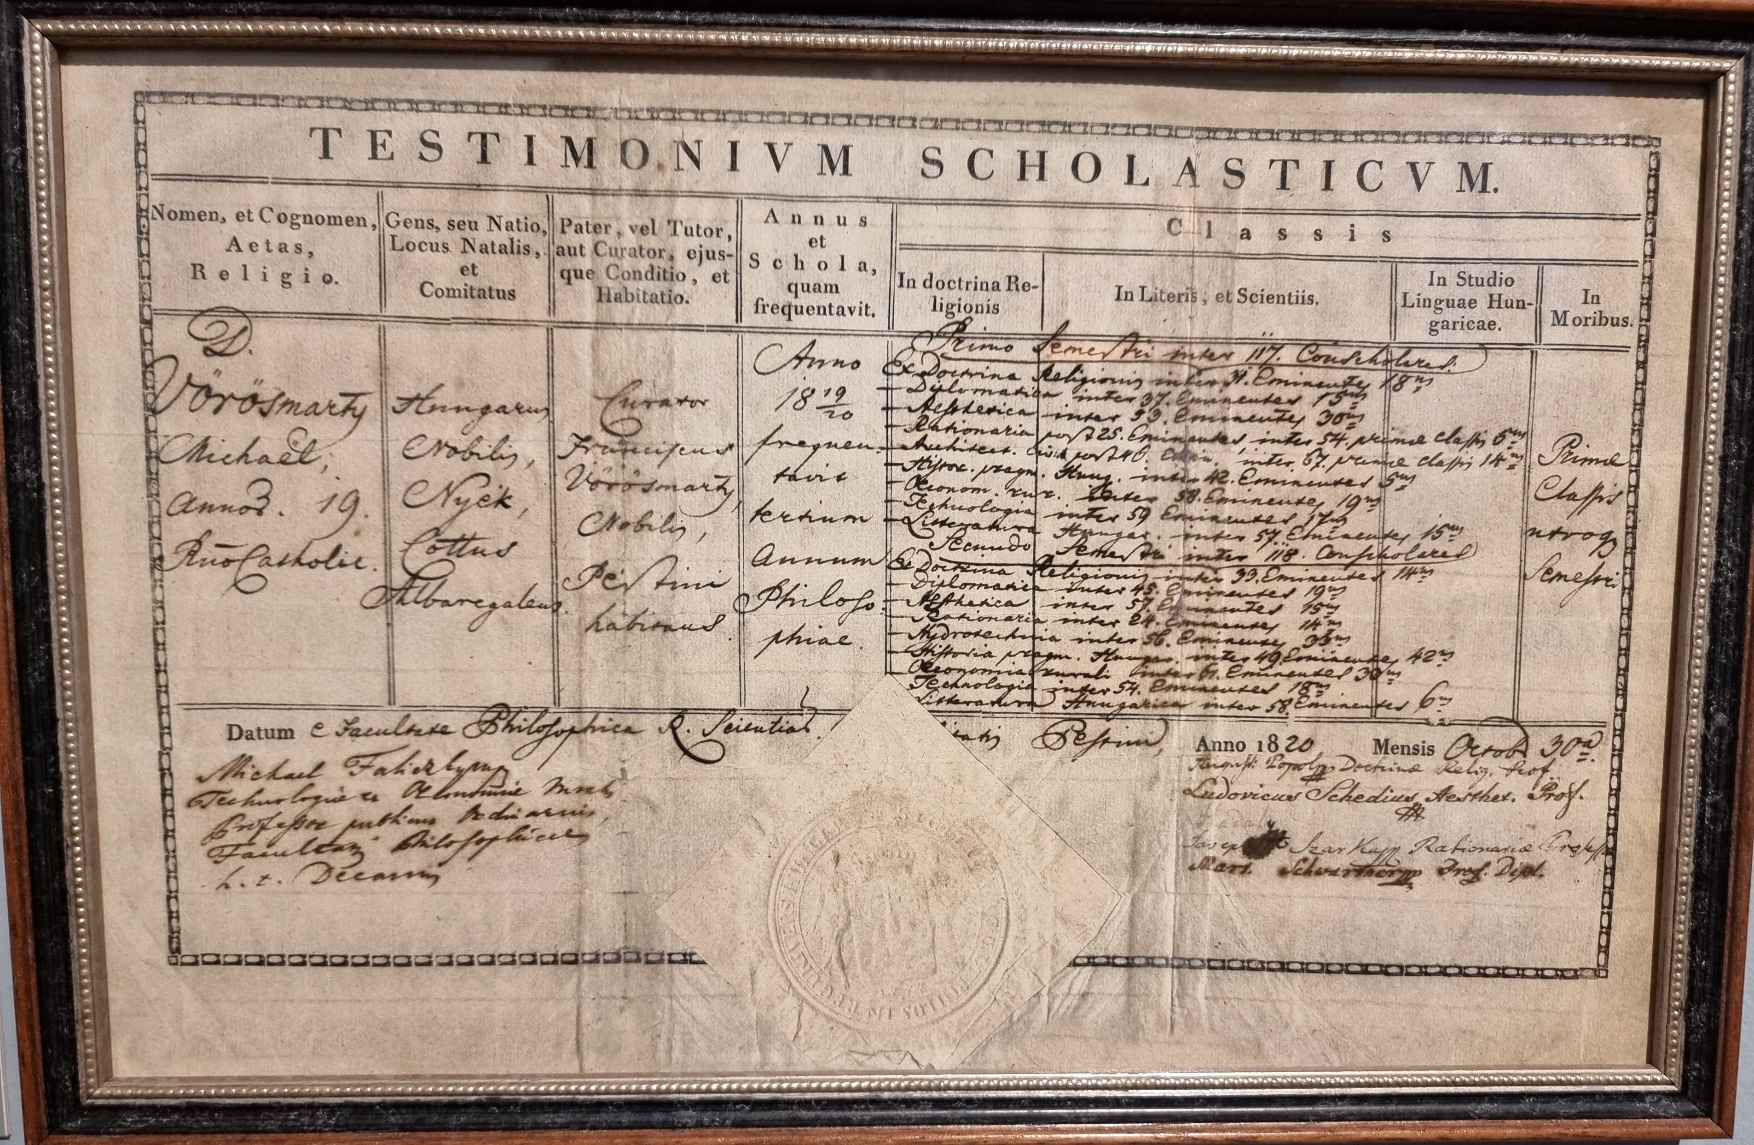 TESTIMONIVM SCHOLASTICVM.
Nomen, et Cognomen,
Aetas,
Religio.
Gens, seu Natio,
Locus Natalis,
et
Comitatus
Pater, vel Tutor,
aut Curator, ejus-
que Conditio, et
Habitatio.
Annus
et
Schola,
quam
frequentavit.
Classis
In doctrina Re-
ligionis
In Literis, et Scientiis.
In Studio
Linguae Hun-
garicae.
In
Moribus.
D.
Vörösmarty
Michaël,
Annor. 19.
Catholic.
Hungarus
Nobilis,
Nyék,
Cottus
Albaregalens.
Curator
Franciscus
Vörösmarty,
Nobilis,
Pestini
habitans.
Anno
18 19/20
frequen-
tavit
tertium
annum
Philoso-
phiae.
Primo Semestri inter 117. Conscholares.
Ex Doctrina Religionis inter 31. Eminentes 18us
— Diplomatica inter 37. Eminentes 15us
— Aesthetica inter 53. Eminentes 30us
— Rationaria post 25. Eminentes, inter 54. primae classis 6us
— Architect. post 40. inter 67. primae classis 14us
— Histor. pragm. Hung. inter 42. Eminentes 5us
— Oeconom. rur. inter 58. Eminentes 19us
— Technologia inter 59 Eminentes 17us
— Litteratura Hungar. inter 57. Eminentes 15us
Secundo Semestri inter 118. Conscholares
Ex Doctrina Religionis inter 39. Eminentes 14us
— Diplomatica inter 45. Eminentes 19us
— Aesthetica inter 57. Eminentes 15us
— Rationaria inter 24. Eminentes 14us
— Hydrotechnia inter 56. Eminentes
— Historia pragm. Hungar. inter 49 Eminentes 42us
— Oeconomia rurali inter 61. Eminentes
— Technologia inter 54. Eminentes 18us
— Litteratura Hungarica inter 58. Eminentes 6us
Primae
Classis
utroq
Semestri
Datum e Facultate Philosophica R. Scientiar. Pestini, Anno 1820 Mensis Octobr 30a.
Michael
Technologiae et Oeconomiae
Professor publicus ordinarius,
Facultatis Philosophicae
h. t. Decanus
Doctrinae Relig. Prof.
Ludovicus Schedius Aesthet. Prof.
Rationariae
Mart. Schwartner Prof. Dipl.